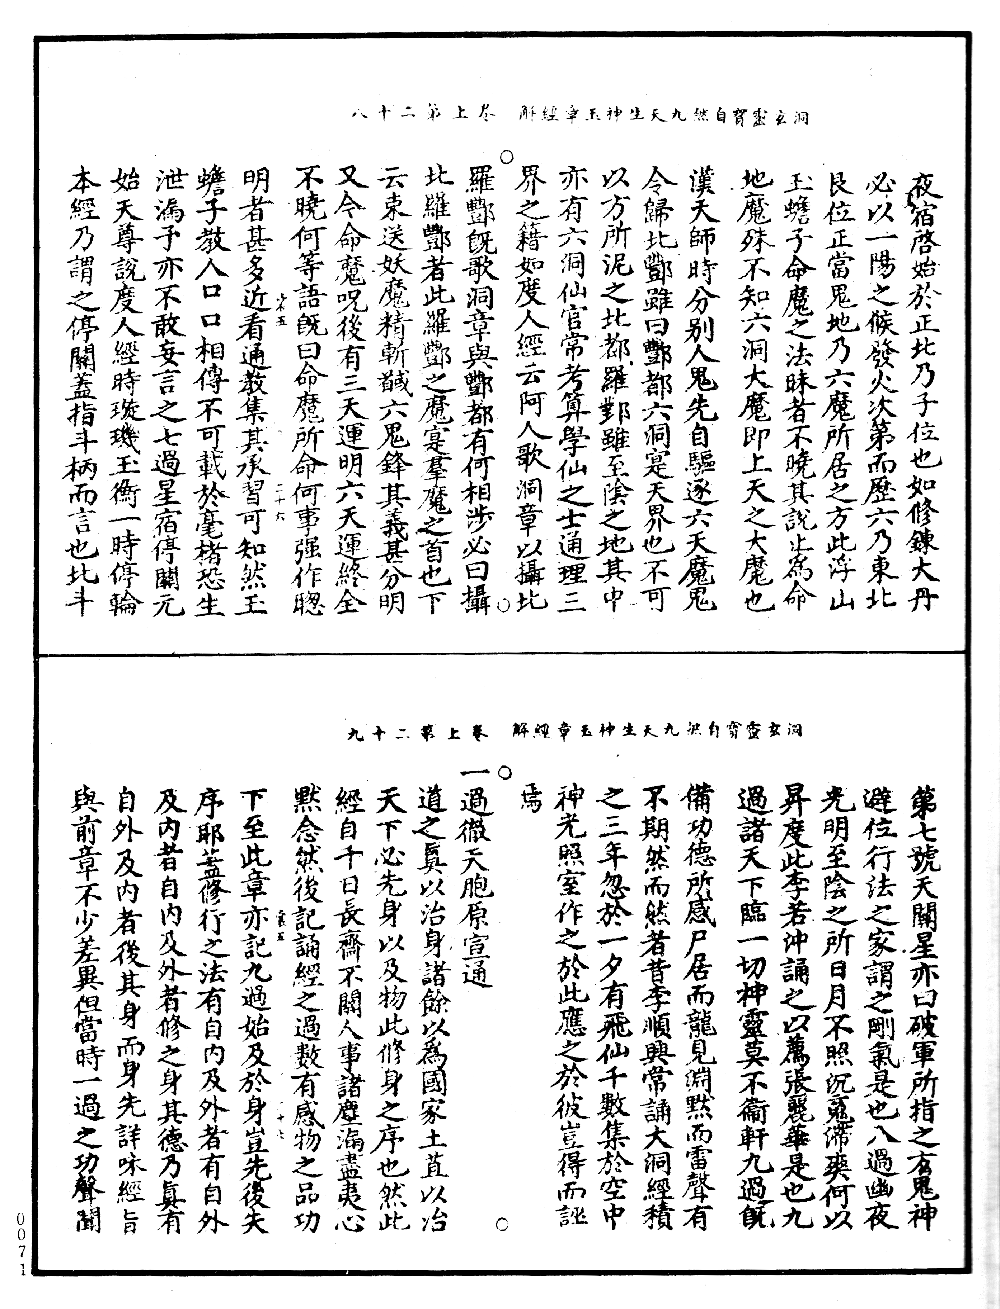 洞玄靈寶自然九天生神玉章經解　卷上第二十八
夜宿啓始於正北乃子位也如修鍊大丹
必以一陽之候發火次第而歷六乃東北
艮位正當鬼地乃六魔所居之方此浮山
玉蟾子命魔之法昧者不曉其說止為命
地魔殊不知六洞大魔即上天之大魔也
漢天師時分別人鬼先自驅逐六天魔鬼
令歸北酆雖曰酆都六洞寔天界也不可
以方所泥之北都羅酆雖至陰之地其中
亦有六洞仙官常考算學仙之士通理三
界之籍如度人經云阿人歌洞章以攝北
羅酆既歌洞章與酆都有何相涉必曰攝
北羅酆者此羅酆之魔寔羣魔之首也下
云束送妖魔精斬馘六鬼鋒其義甚分明
又今命魔呪後有三天運明六天運終全
不曉何等語既曰命魔所命何事强作聰
明者甚多近看通教集其承習可知然玉
蟾子教人口口相傳不可載於毫楮恐生
泄漏予亦不敢妄言之七過星宿停關元
始天尊說度人經時璇璣玉衡一時停輪
本經乃謂之停關蓋指斗柄而言也北斗
洞玄靈寶自然九天生神玉章經解　卷上第二十九
第七號天關星亦曰破軍所指之方鬼神
避位行法之家謂之剛氣是也八過幽夜
光明至陰之所日月不照沉魂滯爽何以
昇度此李若沖誦之以薦張麗華是也九
過諸天下臨一切神靈莫不衞軒九過既
備功德所感尸居而龍見淵默而雷聲有
不期然而然者昔李順興常誦大洞經積
之三年忽於一夕有飛仙千數集於空中
神光照室作之於此應之於彼豈得而誣
焉
一過徹天胞原宣通
道之眞以治身諸餘以為國家土苴以治
天下必先身以及物此修身之序也然此
經自千日長齋不關人事諸塵漏盡夷心
默念然後記誦經之過数有感物之品功
下至此章亦記九過始及於身豈先後夫
序耶蓋修行之法有自内及外者有自外
及内者自内及外者修之身其德乃眞有
自外及内者後其身而身先詳味經旨
與前章不少差異但當時一過之功聲聞
0071